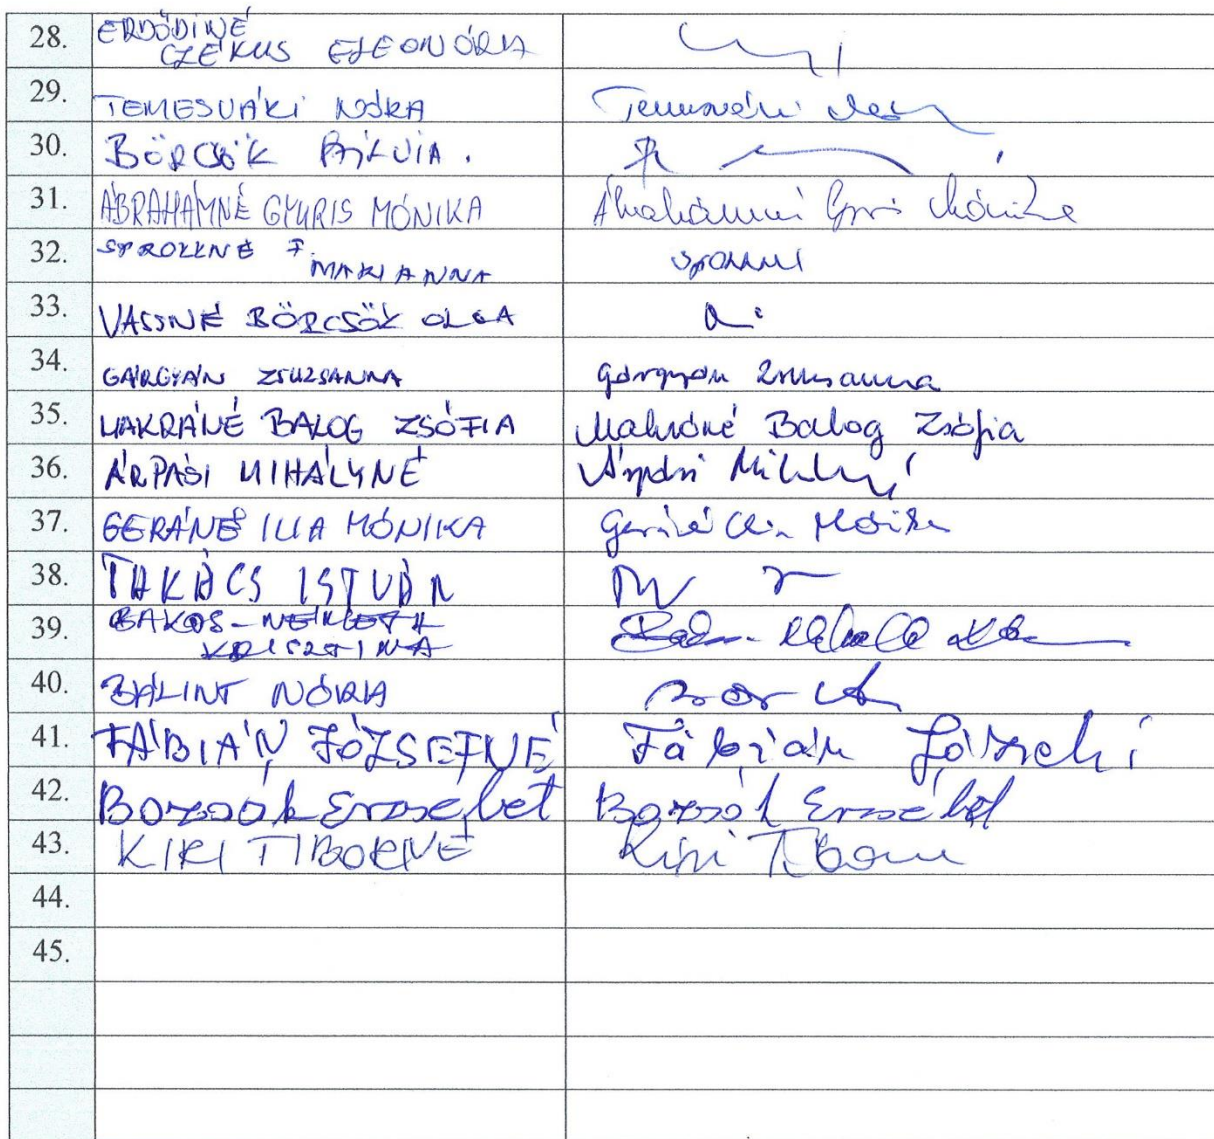 28. ERDŐDINÉ
CZÉKUS ELEONÓRA
29. TEMESVÁRI NÓRA Temesvári
30. BÖRCSÖK
31. ÁBRAHÁMNÉ GYURIS MÓNIKA Ábrahámné Gyuris Mónika
32. F.
MARIANNA
33. VASSNÉ BÖRCSÖK OLGA
34. GÁRGYÁN ZSUZSANNA Gárgyán Zsuzsanna
35. MAKRÁNÉ BALOG ZSÓFIA Makráné Balog Zsófia
36. ÁRPÁSI MIHÁLYNÉ Árpási Mihályné
37. GERÁNÉ ILIA MÓNIKA Geráné Ilia Mónika
38. TAKÁCS ISTVÁN
39. BAKOS-NÉMETH
KRISZTINA
40. BÁLINT NÓRA
41. FÁBIÁN JÓZSEFNÉ Fábián Józsefné
42. Bozsók Erzsébet Bozsók Erzsébet
43. KIRI TIBORNÉ Kiri Tiborné
44.
45.